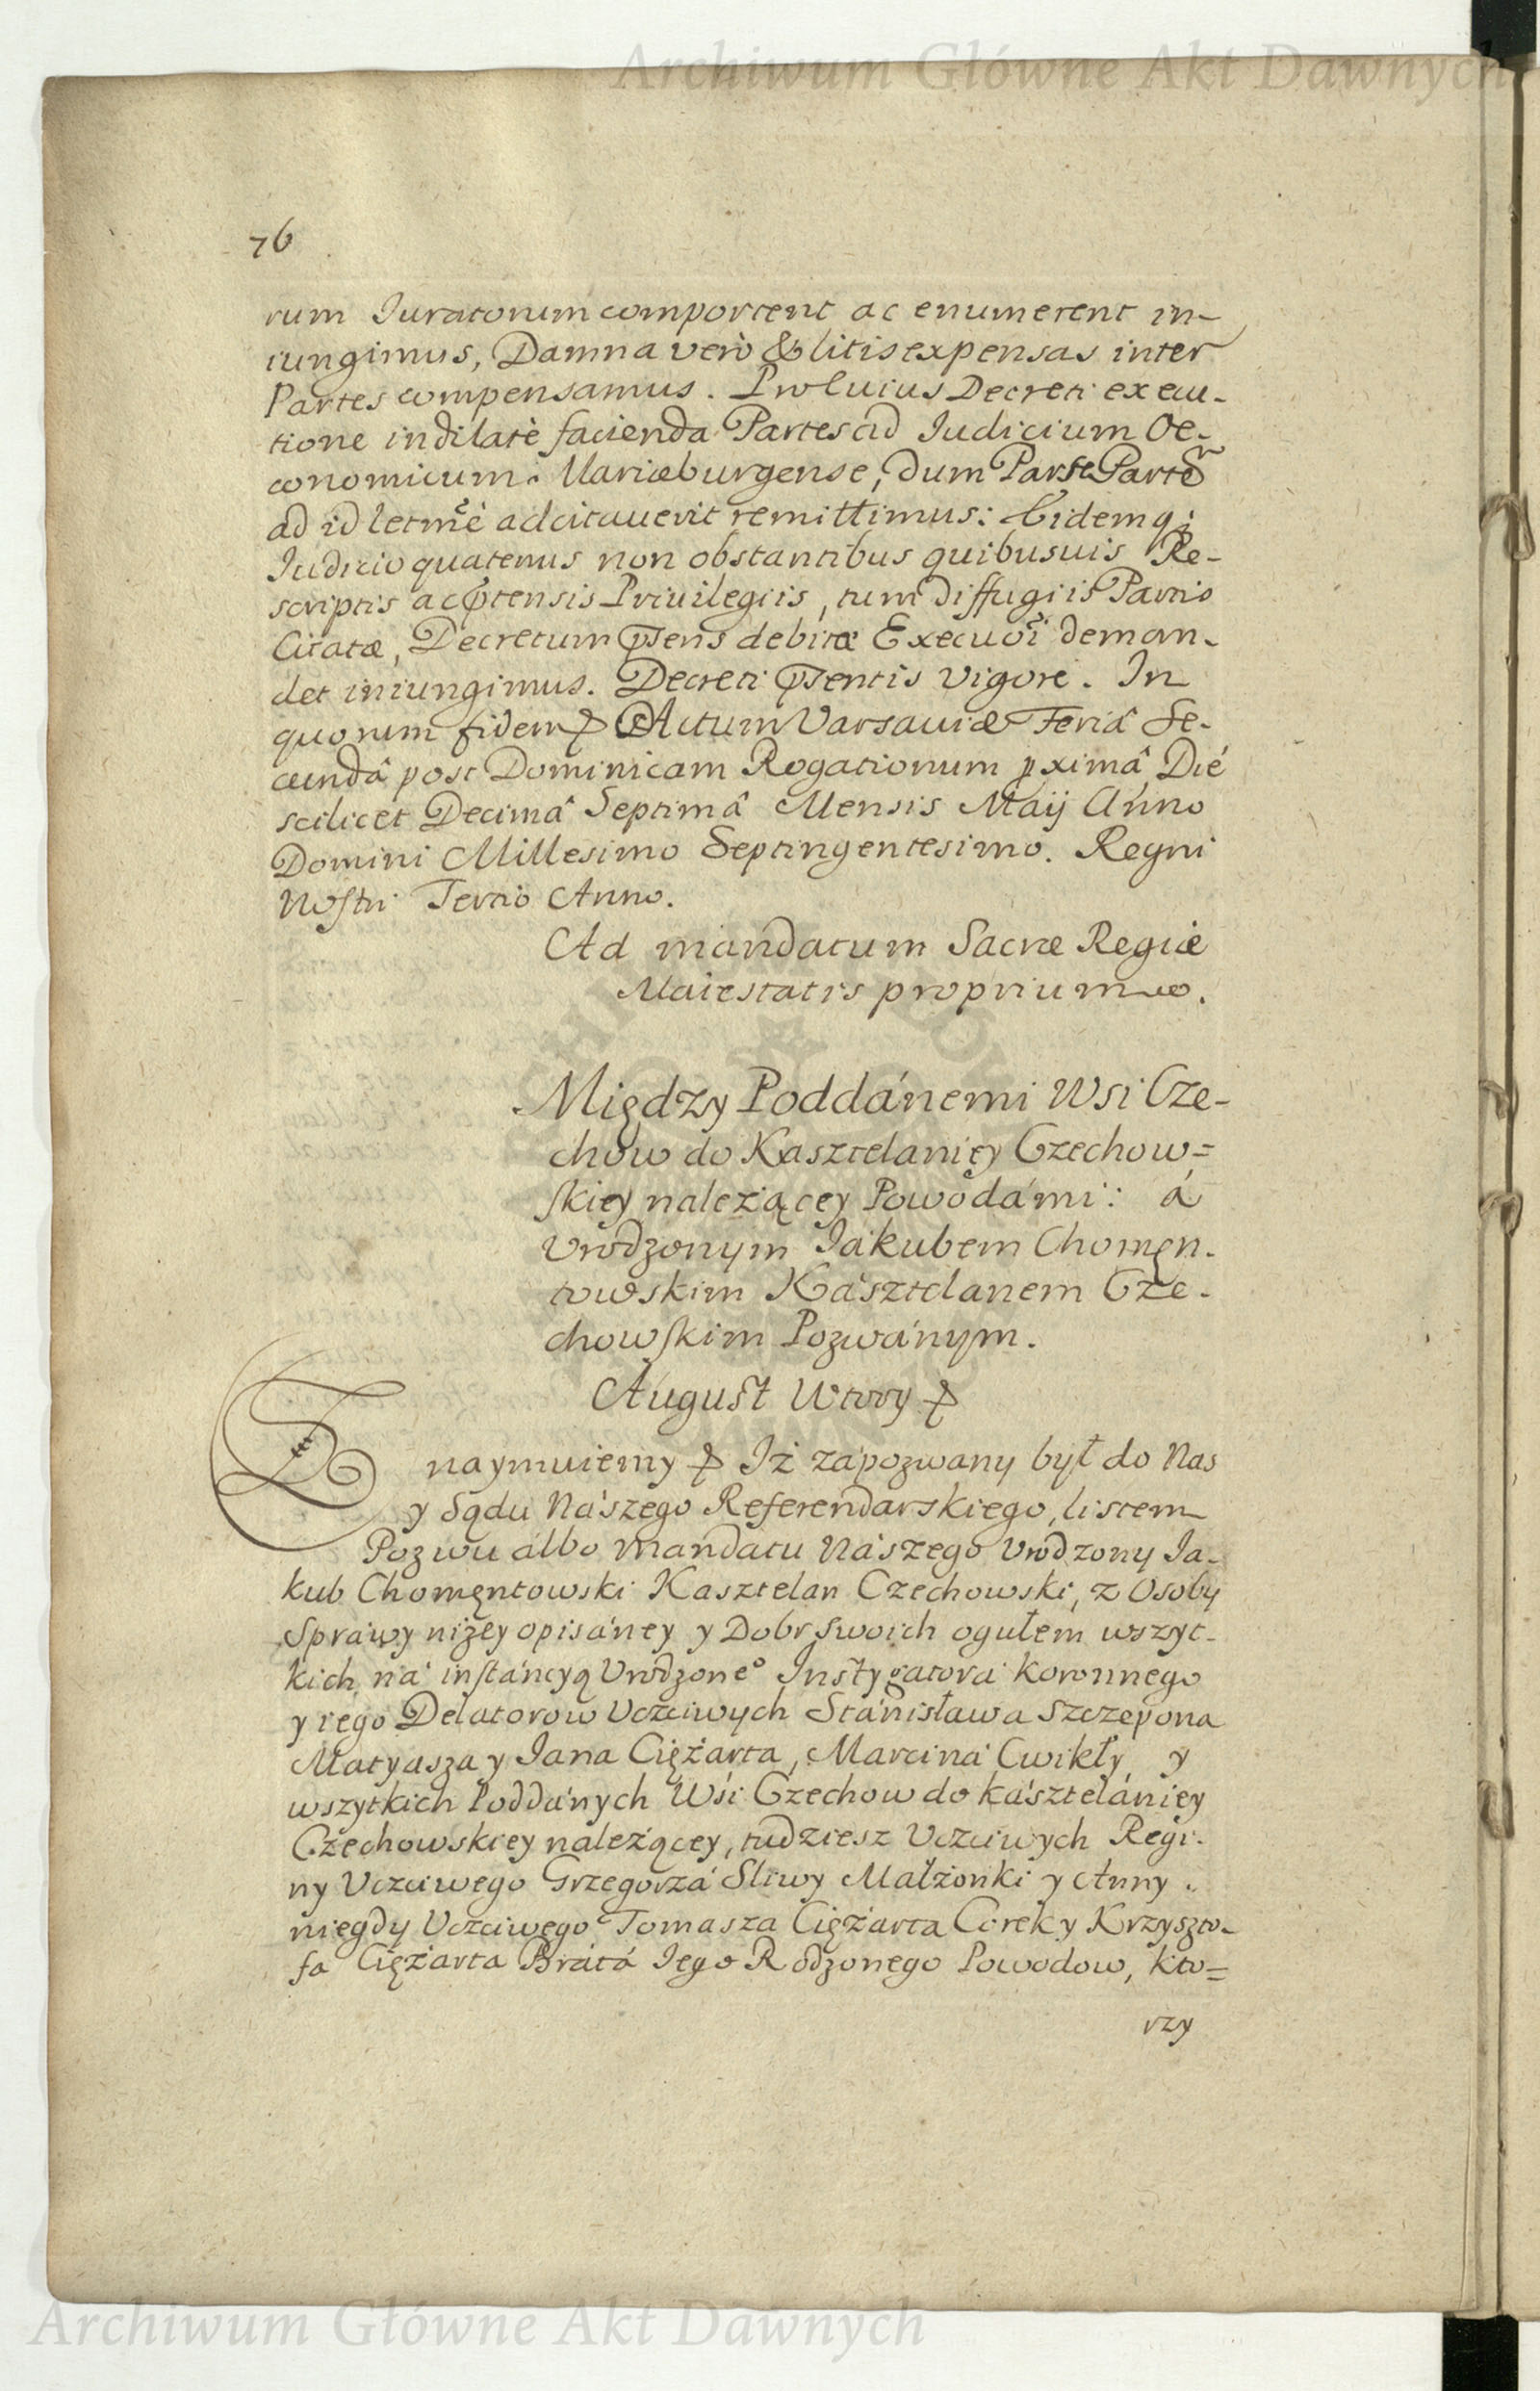 Archiwum Główne Akt Dawnych
76
rum Iuratorum comportent ac enumerent in-
iungimus, Damna verò & litis expensas inter
Partes compensamus. Pro Cuius Decreti execu-
tione indilatè facienda Partes ad Iudicium Oe-
conomicum Mariæburgense, dum Pars Parte͂
ad id letm̃è adcitauerit remittimus: Eidemq;
Iudicio quatenus non obstantibus quibusuis Re-
scriptis ac p̃tensis Priuilegiis, tum diffugiis Partis
Citatæ, Decretum p̃sens debitæ Execuõi deman-
det iniungimus. Decreti p̃sentis vigore. In
quorum fidem & Actum Varsauiæ Feriâ Se-
cundâ post Dominicam Rogationum p̱ximâ Dié
scilicet Decimâ Septimâ Mensis Maij Anno
Domini Millesimo Septingentesimo. Regni
Nostri Tertio Anno.
Ad mandatum Sacræ Regiæ
Maiestatis proprium.
Między Poddánemi Wsi Cze-
chow do Kasztelaniey Czechow=
skiey należącey Powodámi: á
Vrodzonym Iákubem Chomęn-
towskim Kásztelanem Cze-
chowskim Pozwánym.
August Wtory &
Znaymuiemy & Iż zápozwany był do Nas
y Sądu Nászego Referendarskiego, listem
Pozwu álbo mandatu Nászego Vrodzony Ia-
kub Chomęntowski Kasztelan Czechowski, z Osoby
Spráwy niżey opisáney y Dobr swoich ogułem wszyt-
kich, ná instáncyą Vrodzone° Instygatora Koronnego
y iego Delatorow Vczciwych Stánisława Szczepona
Matyasza y Iana Ciężarta, Marciná Cwikły, y
wszytkich Poddánych Wśi Czechow do kásztelániey
Czechowskiey należącey, tudziesz Vczciwych Regi-
ny Vczciwego Grzegorzá Sliwy Małżonki y Anny
niegdy Vczciwego Tomasza Ciężarta Corek y Krzyszto-
fa Ciężarta Brátá Iego Rodzonego Powodow, kto=
rzy
Archiwum Główne Akt Dawnych